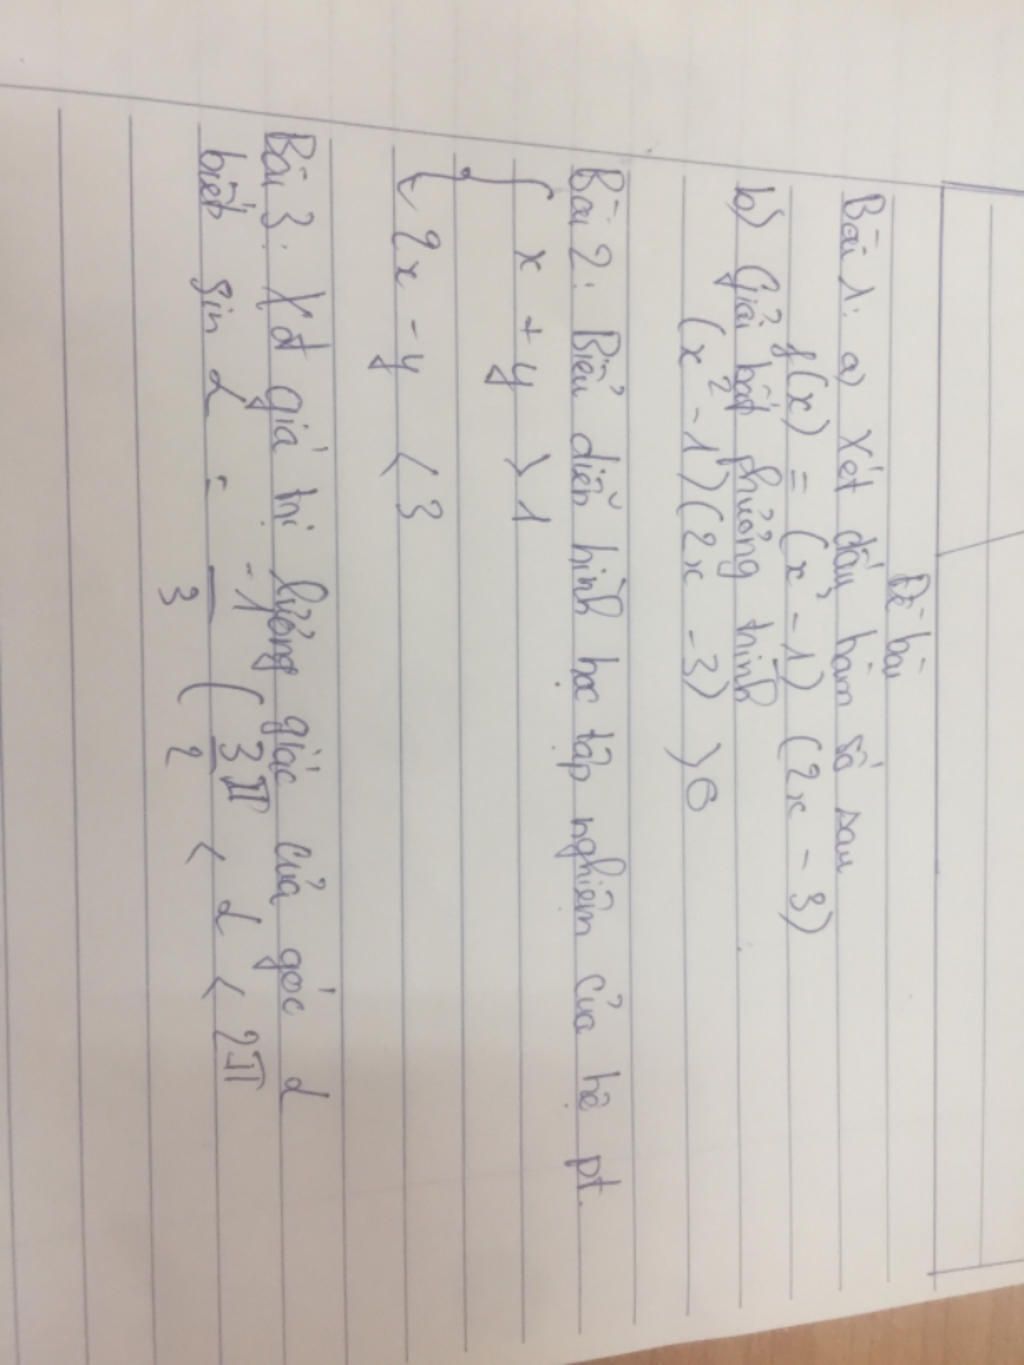 Đề bài
Bài 1: a) Xét dấu hàm số sau
f(x) = (x² - 1) (2x - 3)
b) Giải bất phương trình
(x² - 1)(2x - 3) > 0
Bài 2: Biểu diễn hình học tập nghiệm của hệ pt.
{ x + y > 1
2x - y < 3
Bài 3: Xđ giá trị lượng giác của góc α
biết sin α = -1/3 ( 3π/2 < α < 2π